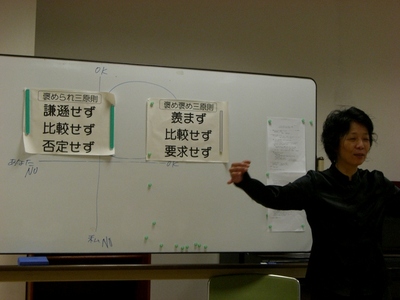 OK
褒められ三原則
謙遜せず
比較せず
否定せず
褒め褒め三原則
羨まず
比較せず
要求せず
あなた
NG
OK
NG